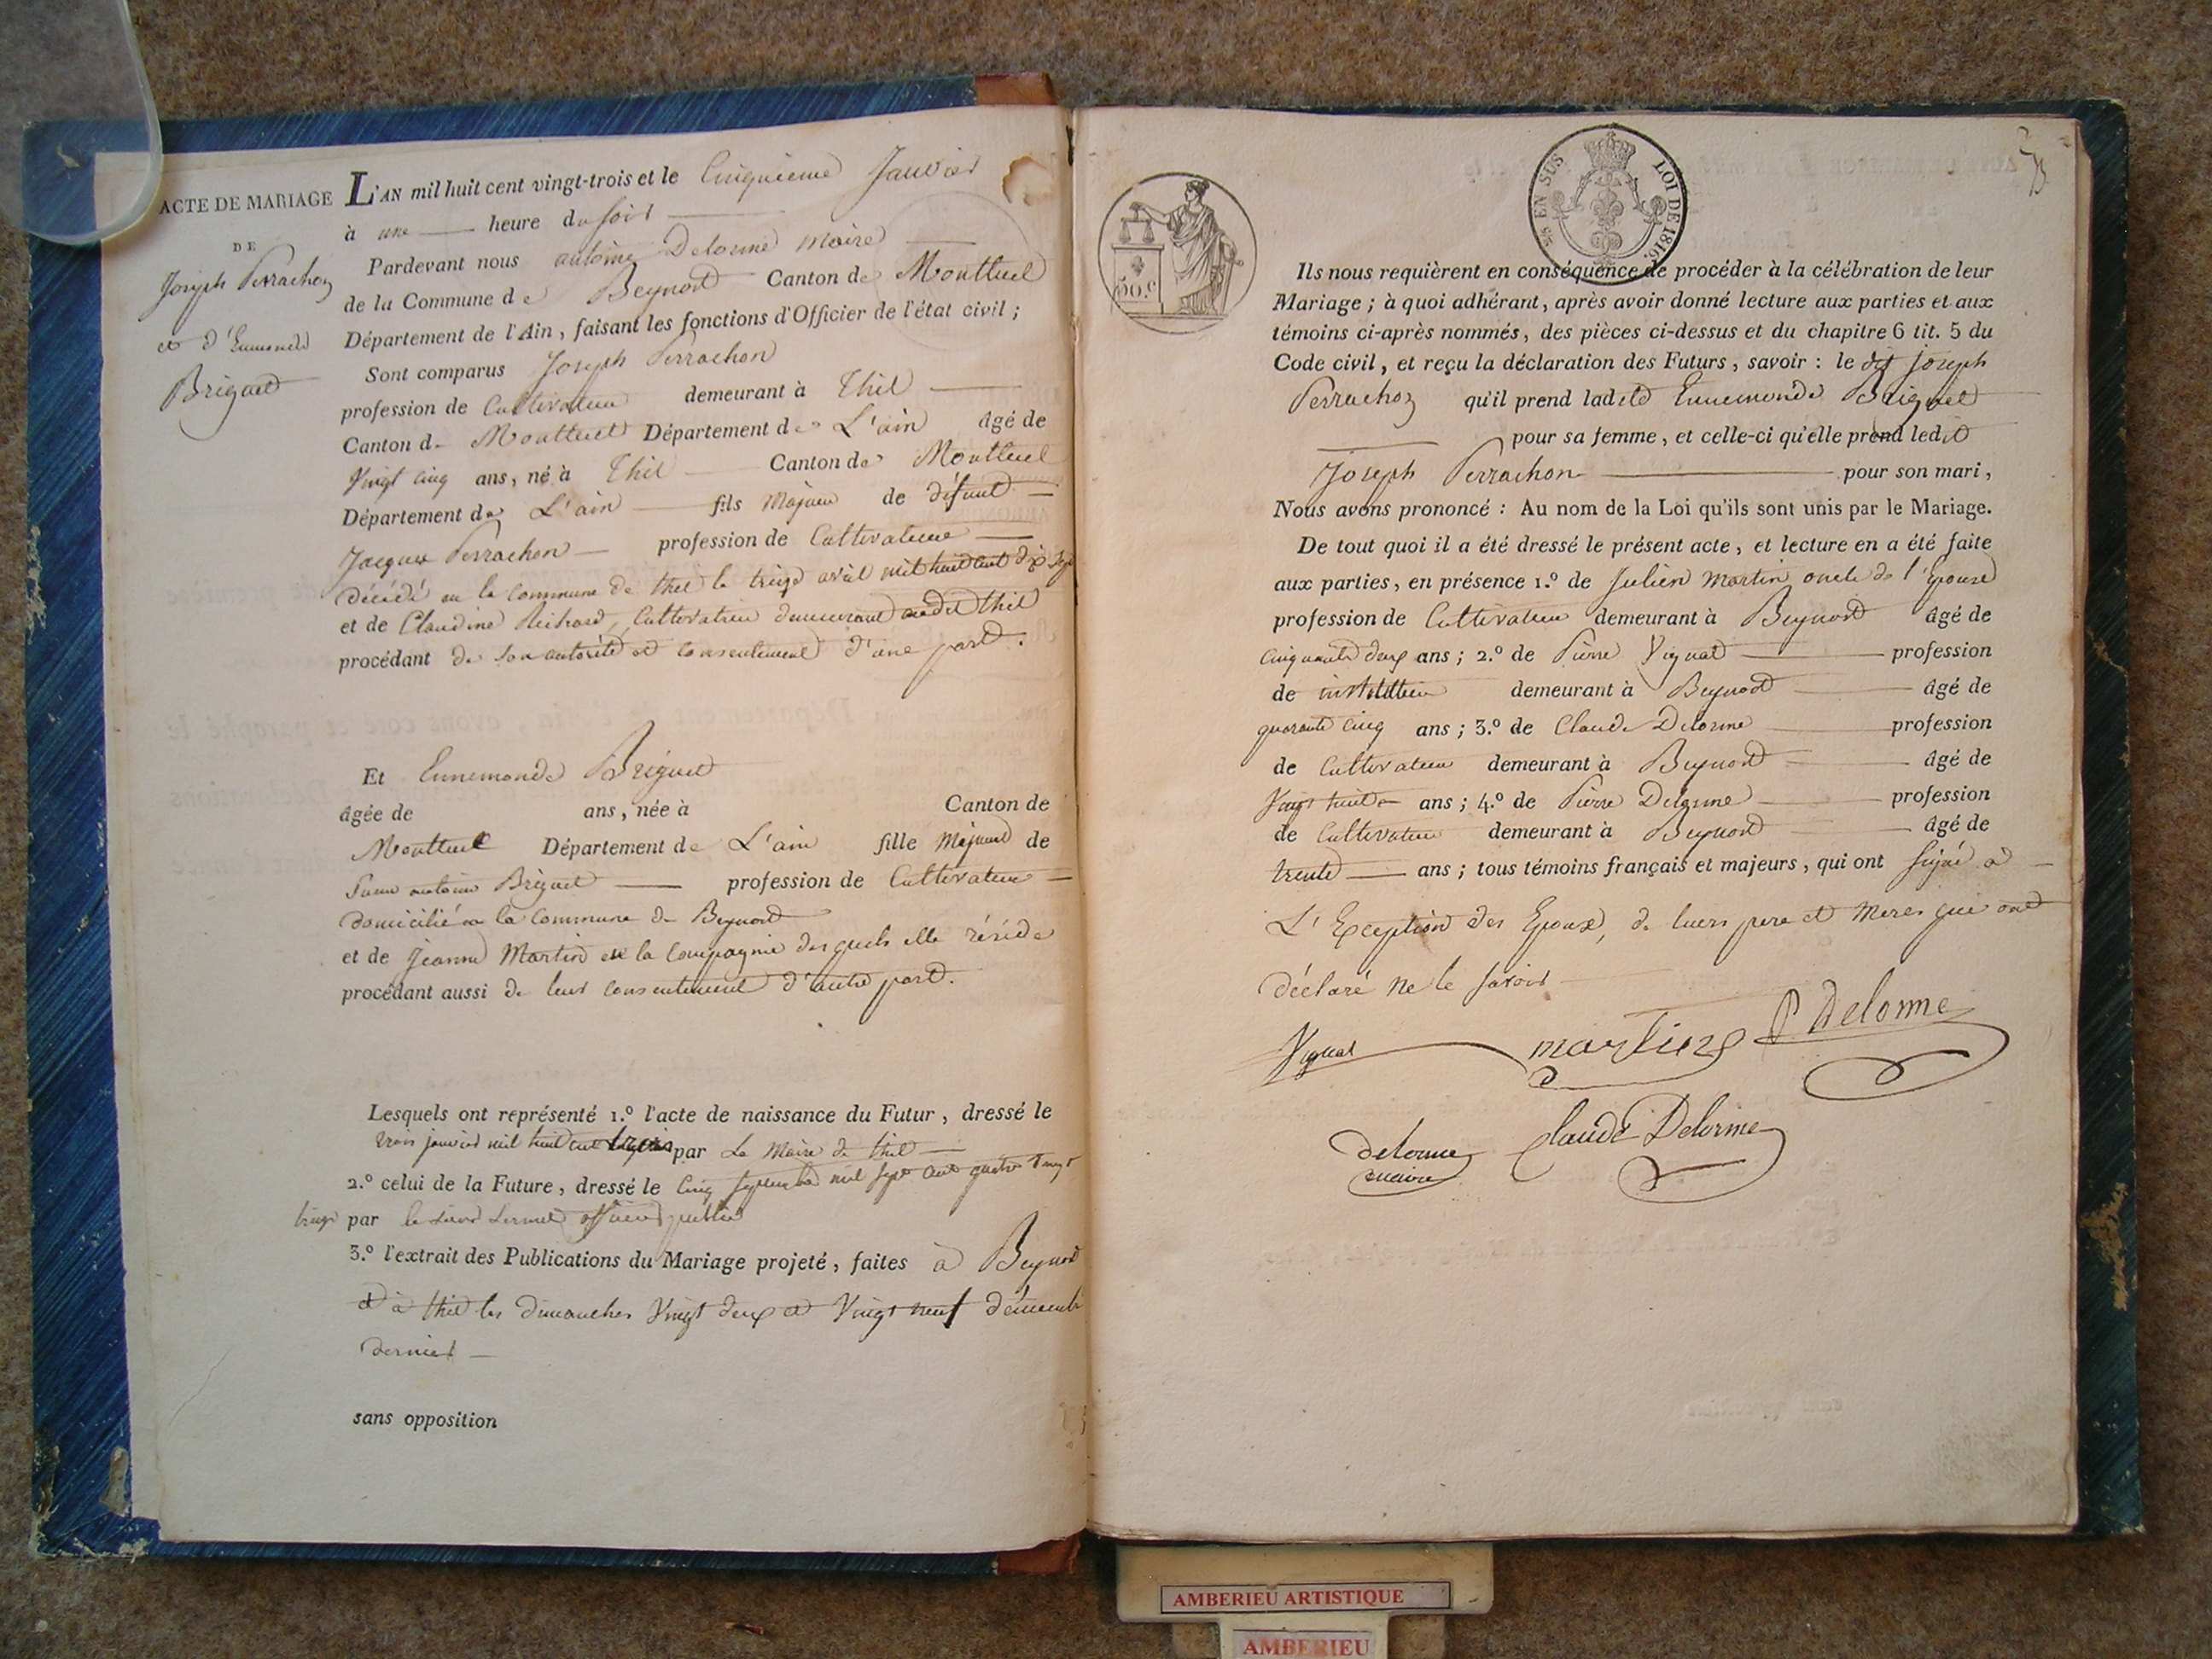 ACTE DE MARIAGE
DE
Joseph Perrachon
et d'Ennemonde
Briguet
L'AN mil huit cent vingt-trois et le Cinquieme Janvier
à une heure du soir
Pardevant nous antoine Delorme maire
de la Commune de Beynost Canton de Montluel
Département de l'Ain, faisant les fonctions d'Officier de l'état civil ;
Sont comparus Joseph Perrachon
profession de Cultivateur demeurant à Thil
Canton de Montluel Département de L'ain âgé de
Vingt cinq ans, né à Thil Canton de Montluel
Département de L'ain fils Majeur de défunt
Jacques Perrachon profession de Cultivateur
décédé en la commune de thil le treize avril mil huit cent dix sept
et de Claudine Richard, Cultivatrice demeurant audit thil
procédant de son autorité et consentement d'une part.
Et Ennemonde Briguet
âgée de ans, née à Canton de
Montluel Département de L'ain fille Majeure de
antoine Briguet profession de Cultivateur
domicilié en la Commune de Beynost
et de Jeanne Martin en la Compagnie desquels elle réside
procédant aussi de leur consentement d'autre part.
Lesquels ont représenté 1.º l'acte de naissance du Futur, dressé le
trois janvier mil huit cent par Le Maire de thil
2.º celui de la Future, dressé le Cinq septembre mil sept cent quatre vingt
treize par le sieur officier public
3.º l'extrait des Publications du Mariage projeté, faites à Beynost
et à thil les dimanches Vingt deux et Vingt neuf décembre
dernier
sans opposition
50.c
5/6 EN SUS LOI DE 1816.
Ils nous requièrent en conséquence de procéder à la célébration de leur
Mariage ; à quoi adhérant, après avoir donné lecture aux parties et aux
témoins ci-après nommés, des pièces ci-dessus et du chapitre 6 tit. 5 du
Code civil, et reçu la déclaration des Futurs, savoir : le dit Joseph
Perrachon qu'il prend ladite Ennemonde Briguet
pour sa femme, et celle-ci qu'elle prend ledit
Joseph Perrachon pour son mari,
Nous avons prononcé : Au nom de la Loi qu'ils sont unis par le Mariage.
De tout quoi il a été dressé le présent acte, et lecture en a été faite
aux parties, en présence 1.º de Julien Martin oncle de l'Epouse
profession de Cultivateur demeurant à Beynost âgé de
cinquante deux ans ; 2.º de Pierre Vignat profession
de instituteur demeurant à Beynost âgé de
quarante cinq ans ; 3.º de Claude Delorme profession
de Cultivateur demeurant à Beynost âgé de
Vingt huit ans ; 4.º de Pierre Delorme profession
de Cultivateur demeurant à Beynost âgé de
trente ans ; tous témoins français et majeurs, qui ont signé à
L'Exception des Epoux, de leurs pere et Meres qui ont
déclaré ne le savoir
Vignat martin P Delorme
delorme Claude Delorme
maire
AMBERIEU ARTISTIQUE
AMBERIEU